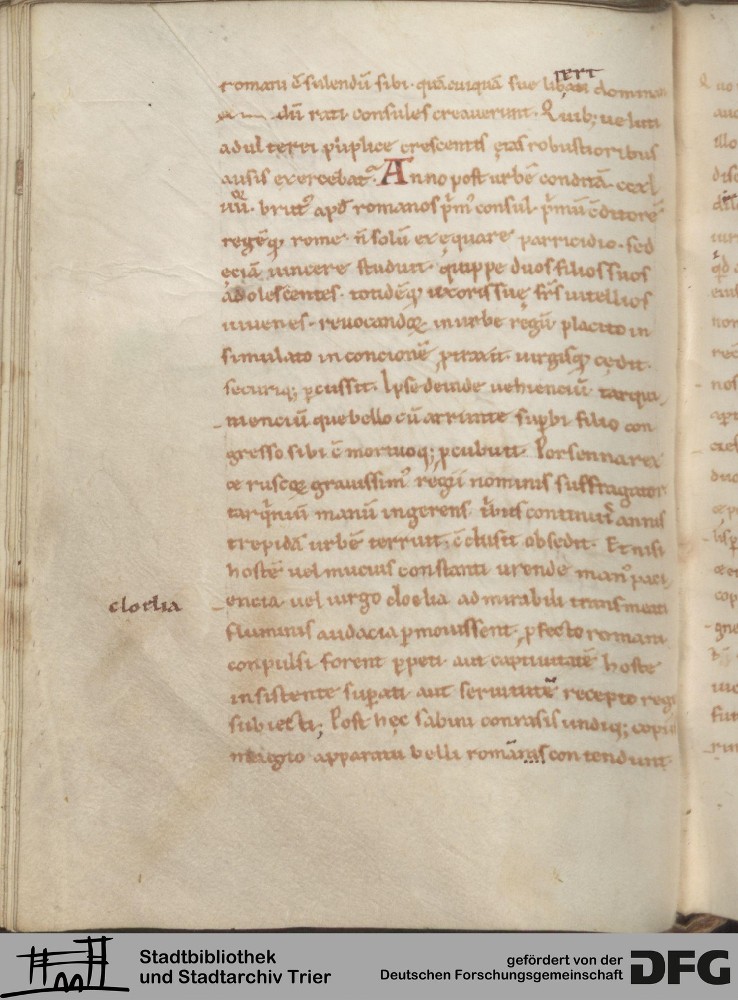 romani c̄sulendū sibi · quācuiquā sue libertati dominan
dū rati consules creauerunt · Quib; ueluti
adulterei puplice crescentis ętas robustioribus
ausis exercebat᷑ · Anno post urbē conditā · ccxl
uii · brut᷒ apđ romanos p̄m᷒ consul · p̄mū c̄ditorē
regēq; rome · n̄ solū exęquare parricidio · sed
eciā uincere studuit · quippe duos filios suos
adolescentes · totidēq; uxoris suę fr̄s uitellios
iuuenes · reuocandoꝝ in urbe regū placito in
simulato in concionē ꝓtraxit uirgisq; cędit ·
securiq; ꝑcussit · Ipse deinde uehienciū tarqui
nienciū que bello cū arrunte suꝑbi filio con
gresso sibi c̄mortuoq; ꝓcubuit · Porsenna rex
ętruscoꝝ grauissim᷒ regii nominis suffragator
tarq̇niū manū ingerens · tribus continuis annis
trepidā urbē terruit, c̄clusit obsedit · Et nisi
hostē uel mucius constanti urende man᷒ paci
cloelia
encia uel uirgo cloelia admirabili transmeati
fluminis audacia ꝑmouissent · ꝓfecto romani
conpulsi forent ꝑpeti · aut captiuitatē hoste
insistente suꝑati aut seruitutē recepto regi
subiecti; Post hęc sabini conrasis undiq; copiis
magno apparatu belli romā contendunt ·
Stadtbibliothek
und Stadtarchiv Trier
gefördert von der
Deutschen Forschungsgemeinschaft
DFG